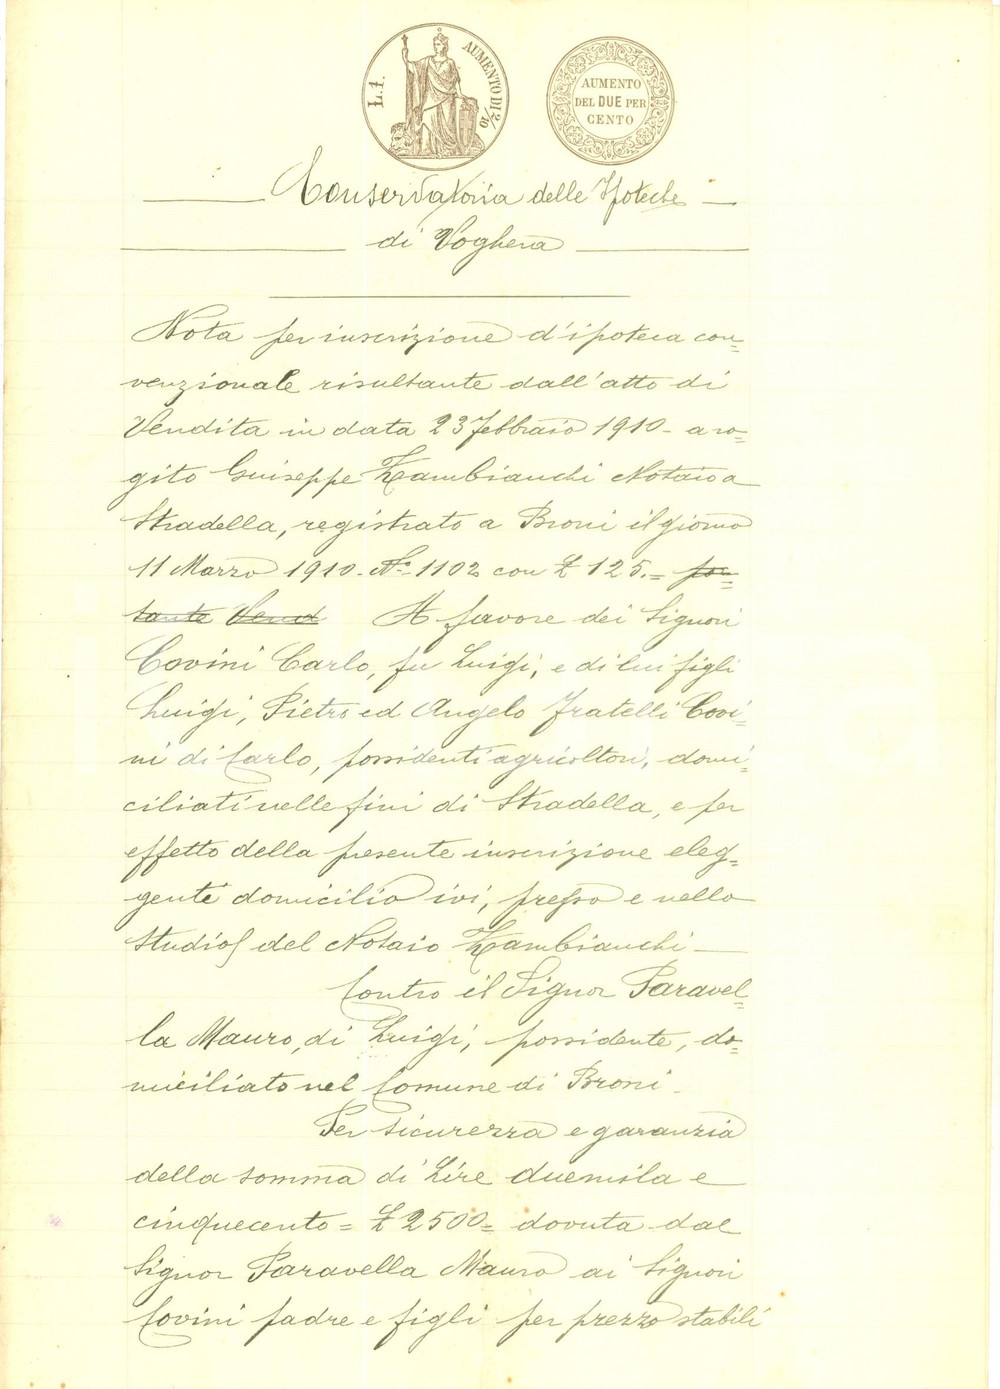 L. 1.
AUMENTO DI 2/10
AUMENTO
DEL DUE PER
CENTO
Conservatoria delle Ipoteche
di Voghera
Nota per inscrizione d'ipoteca con=
venzionale risultante dall'atto di
Vendita in data 23 Febbraio 1910 - a ro=
gito Giuseppe Zambianchi Notaio a
Stradella, registrato a Broni il giorno
11 Marzo 1910 - No. 1102 con £ 125.= por=
tante Vend A favore dei Signori
Covini Carlo, fu Luigi, e di lui figli
Luigi, Pietro ed Angelo fratelli Covi=
ni di Carlo, possidenti agricoltori, domi=
ciliati nelle fini di Stradella, e per
effetto della presente inscrizione eleg=
genti domicilio ivi, presso e nello
Studio del Notaio Zambianchi -
Contro il Signor Paravel=
la Mauro, di Luigi, possidente, do=
miciliato nel Comune di Broni -
Per sicurezza e garanzia
della somma di Lire duemila e
cinquecento = £ 2500 = dovuta dal
Signor Paravella Mauro ai Signori
Covini padre e figli per prezzo stabili